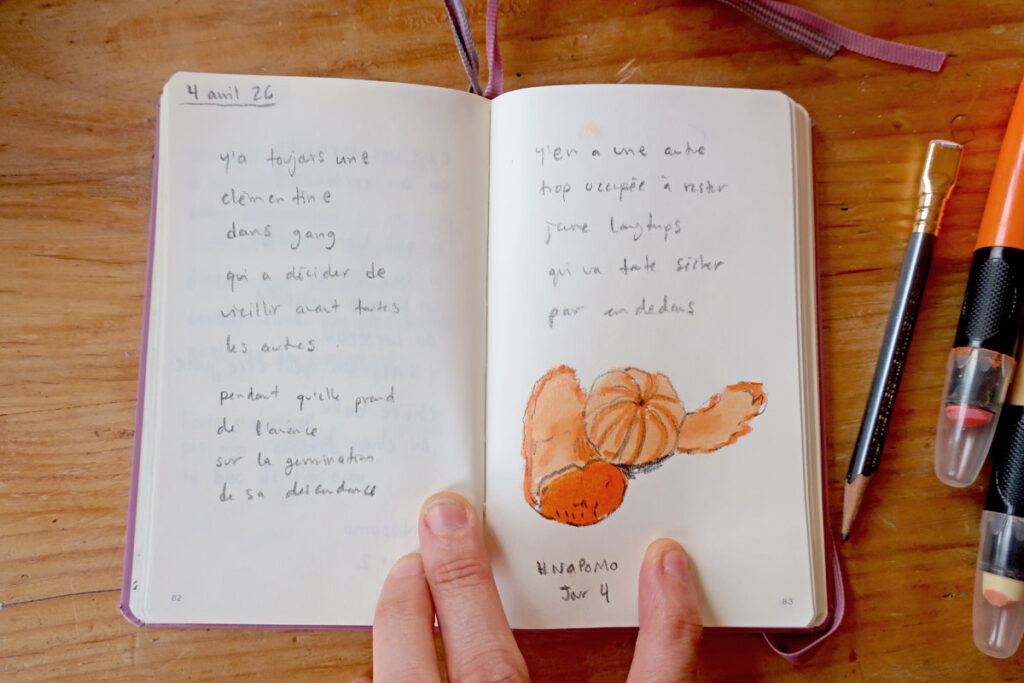 4 avril 26
y'a toujours une
clémentine
dans gang
qui a décider de
vieillir avant toutes
les autres
pendant qu'elle prend
de l'avance
sur la germination
de sa descendance
82
y'en a une autre
trop occupée à rester
jeune longtmps
qui va toute sécher
par en dedans
#NaPoMo
Jour 4
83